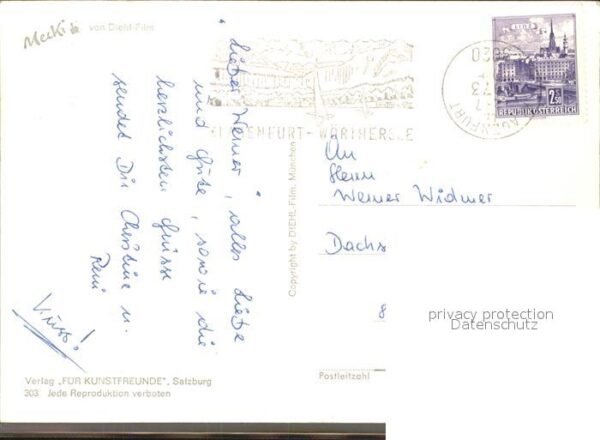 Mecki von Diehl-Film
Lieber Werner, alles Liebe
und Gute, sowie die
herzlichsten Grüsse
sendet Dir Christine u.
Reni
LINZ
2.50
REPUBLIK ÖSTERREICH
9020
KLAGENFURT
73
KLAGENFURT-WÖRTHERSEE
An
Herrn
Werner Widmer
Dachs
8
Copyright by DIEHL-Film, München
privacy protection
Datenschutz
Postleitzahl
Verlag „FÜR KUNSTFREUNDE", Salzburg
303 Jede Reproduktion verboten